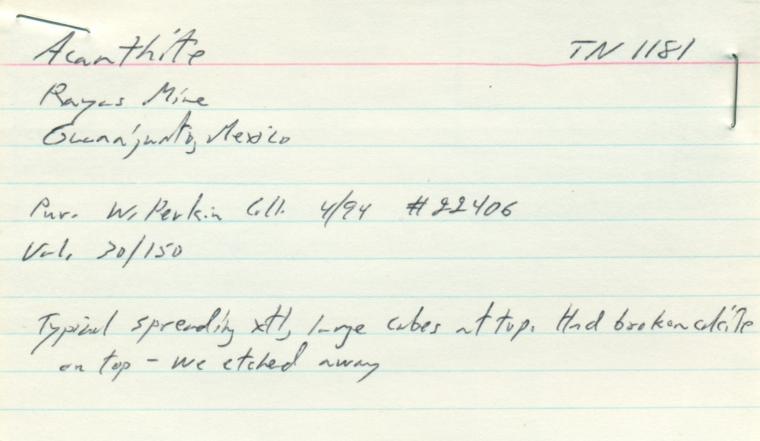 Acanthite TN 1181
Rayas Mine
Guanajuato, Mexico
Pur. W. Perkin Coll. 4/94 #22406
Val. 30/150
Typical spreading xtl, large cubes at top. Had broken calcite
on top - we etched away